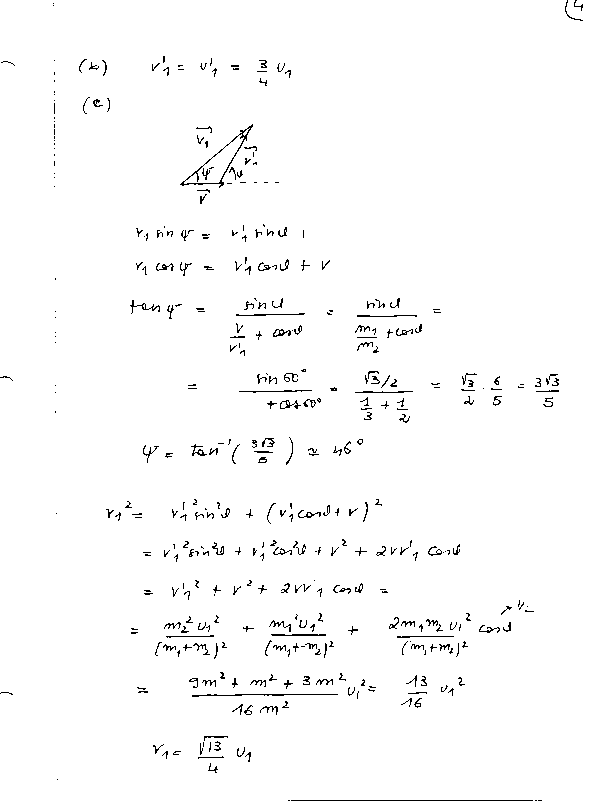 (4
(b) v'₁ = u'₁ = 3/4 u₁
(c)
v⃗₁
ψ
v⃗'₁
ϑ
V⃗
v₁ sin ψ = v'₁ sin ϑ ,
v₁ cos ψ = v'₁ cos ϑ + V
tan ψ = sin ϑ / (V/v'₁ + cos ϑ) = sin ϑ / (m₁/m₂ + cos ϑ) =
= sin 60° / (+ cos 60°) = (√3/2) / (1/3 + 1/2) = √3/2 · 6/5 = 3√3/5
ψ = tan⁻¹ (3√3/5) ≈ 46°
v₁² = v'₁² sin²ϑ + (v'₁ cos ϑ + V)²
= v'₁² sin²ϑ + v'₁² cos²ϑ + V² + 2Vv'₁ cos ϑ
= v'₁² + V² + 2Vv'₁ cos ϑ =
= m₂² u₁² / (m₁+m₂)² + m₁² u₁² / (m₁+m₂)² + 2m₁m₂ u₁² / (m₁+m₂)² cos ϑ ↗ ½
= (9m² + m² + 3m²) / 16m² u₁² = 13/16 u₁²
v₁ = √13/4 u₁